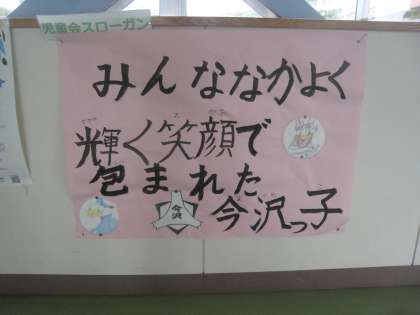 児童会スローガン
みんななかよく
輝く笑顔で
包まれた
今沢っ子
今沢